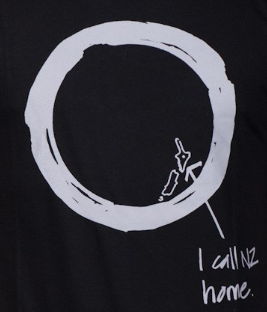 I call NZ
home.